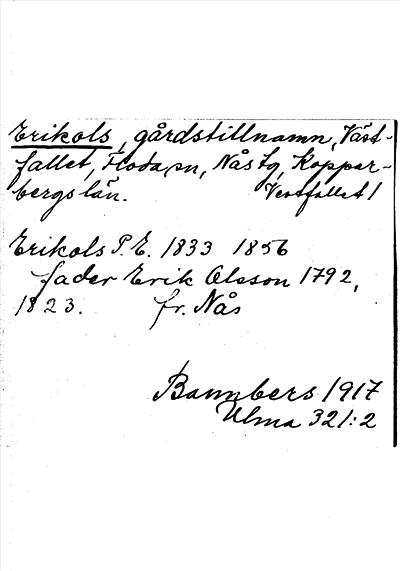 Erikols, gårdstillnamn, Väst-
fallet, Floda sn, Nås tg, Koppar-
bergs län. Vestfallet 1
Erikols P. E. 1833 1856
fader Erik Olsson 1792,
1823. fr. Nås
Bannbers 1917
Ulma 321:2